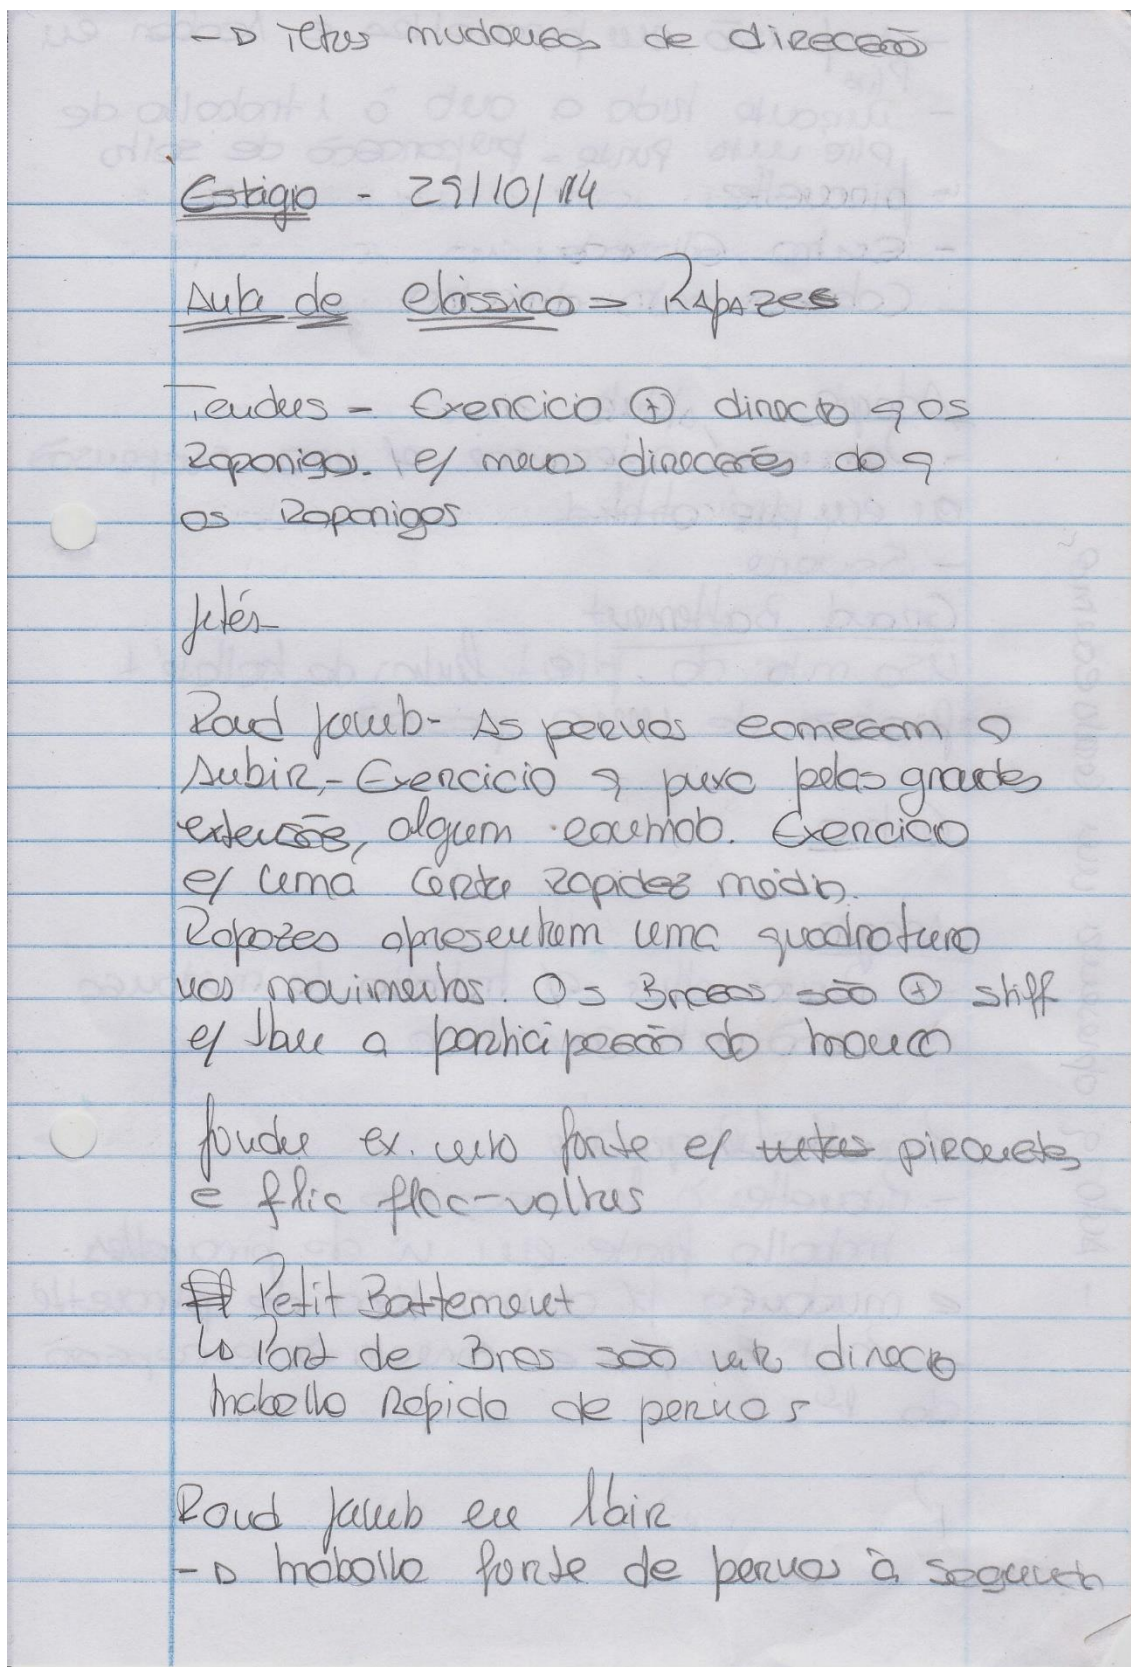 → mudanças de direcção
Estágio - 29/10/14
Aula de clássico = Rapazes
Tendus - Exercicio ⊕ directo q os
Raparigas. c/ menos direcções do q
os Raparigas
Jetés
Rond Jamb - As pernas começam a
subir, - Exercicio q puxa pelas grandes
extensões, algum cambob. Exercicio
c/ uma certa rapidez média.
Rapazes apresentam uma quadratura
nos movimentos. Os Braços são ⊕ stiff
c/ a participação do tronco
fondu ex. mto forte c/ piruetas
e flic flac-voltas
Petit Battement
↳ Port de Bras são mto directo
trabalho Rápido de pernas
Rond Jamb en l'air
→ trabalho forte de pernas à segunda